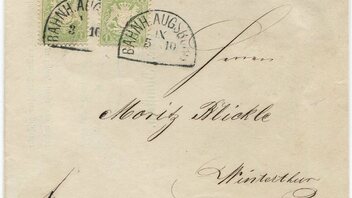 BAHNH. AUGSB
5 10
BAHNH. AUGSBURG
IX
5 10
Herrn
Moritz Klickle
Winterthur